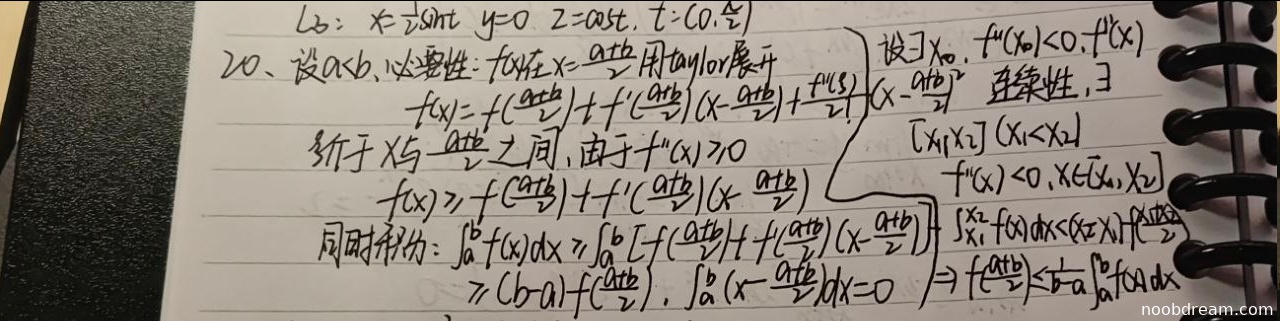 L6: x=½sint y=0 z=cost, t:(0,π/2)
20、设a<b、必要性:f(x)在x=(a+b)/2用taylor展开
f(x)=f((a+b)/2)+f'((a+b)/2)(x-(a+b)/2)+f''(ξ)/2!(x-(a+b)/2)²
ξ介于x与(a+b)/2之间,由于f''(x)≥0
f(x)≥f((a+b)/2)+f'((a+b)/2)(x-(a+b)/2)
同时积分:∫_a^b f(x)dx≥∫_a^b[f((a+b)/2)+f'((a+b)/2)(x-(a+b)/2)]
≥(b-a)f((a+b)/2),∫_a^b(x-(a+b)/2)dx=0
设∃x₀,f''(x₀)<0,f''(x)
连续性,∃
[x₁,x₂](x₁<x₂)
f''(x)<0,x∈[x₁,x₂]
∫_{x₁}^{x₂}f(x)dx<(x₂-x₁)f((x₁+x₂)/2)
⇒f((a+b)/2)≤1/(b-a)∫_a^b f(x)dx
noobdream.com